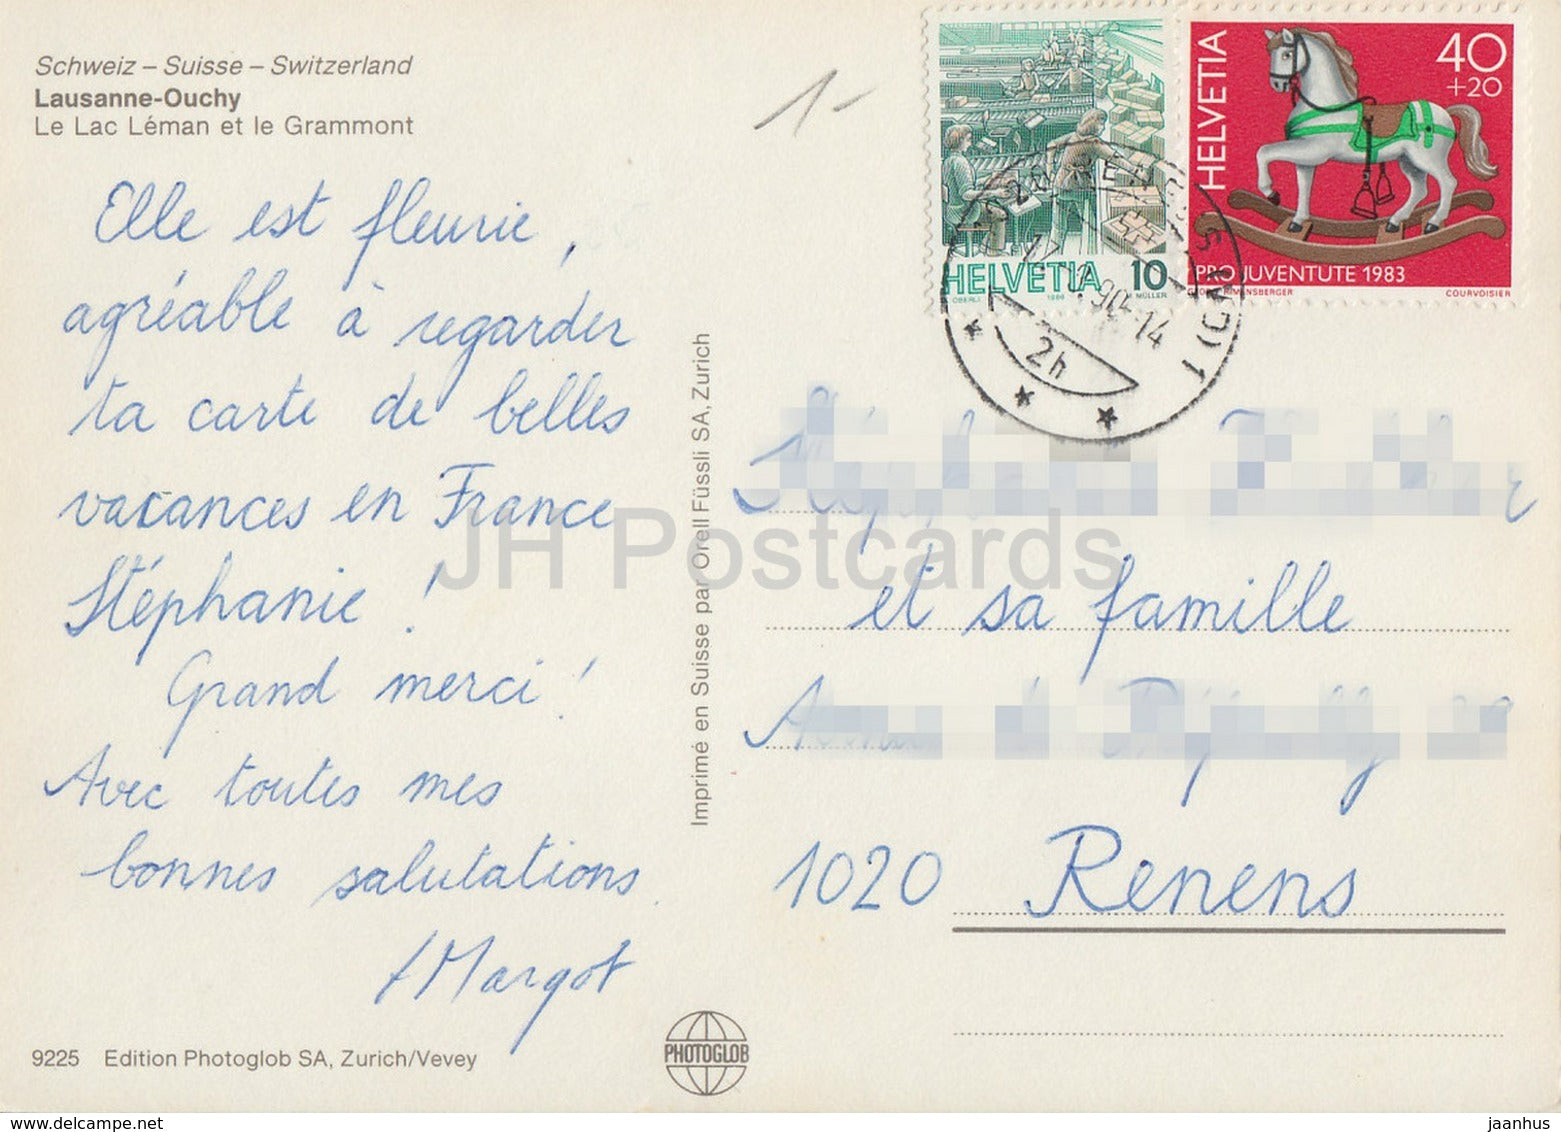 Schweiz – Suisse – Switzerland
Lausanne-Ouchy
Le Lac Léman et le Grammont
1-
Elle est fleurie,
agréable à regarder
ta carte de belles
vacances en France
Stéphanie !
Grand merci !
Avec toutes mes
bonnes salutations.
Margot
9225 Edition Photoglob SA, Zurich/Vevey
Imprimé en Suisse par Orell Füssli SA, Zurich
PHOTOGLOB
HELVETIA 10
OBERLI 1986 MÜLLER
HELVETIA
40
+20
PRO JUVENTUTE 1983
COURVOISIER
1020 RENENS 1 (
90-14
2h
et sa famille
1020 Renens
JH Postcards
jaanhus